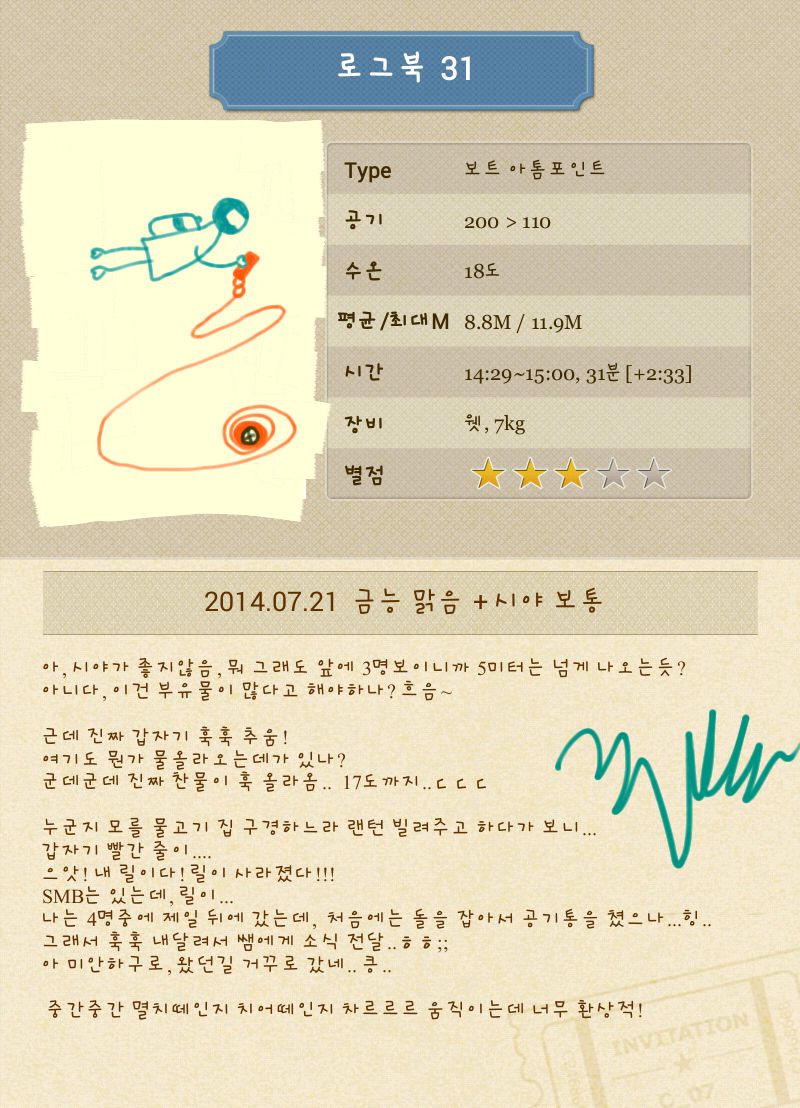 로그북 31
Type 보트 아톰포인트
공기 200 > 110
수온 18도
평균/최대M 8.8M / 11.9M
시간 14:29~15:00, 31분 [+2:33]
장비 웻, 7kg
별점
2014.07.21 금능 맑음 +시야 보통
아, 시야가 좋지않음, 뭐 그래도 앞에 3명보이니까 5미터는 넘게 나오는듯?
아니다, 이건 부유물이 많다고 해야하나? 흐음~
근데 진짜 갑자기 훅훅 추움!
여기도 뭔가 물올라오는데가 있나?
군데군데 진짜 찬물이 훅 올라옴.. 17도까지..ㄷㄷㄷ
누군지 모를 물고기 집 구경하느라 랜턴 빌려주고 하다가 보니...
갑자기 빨간 줄이....
으앗! 내 릴이다! 릴이 사라졌다!!!
SMB는 있는데, 릴이...
나는 4명중에 제일 뒤에 갔는데, 처음에는 돌을 잡아서 공기통을 쳤으나...힝..
그래서 훅훅 내달려서 쌤에게 소식 전달..ㅎㅎ;;
아 미안하구로, 왔던길 거꾸로 갔네.. 킁..
중간중간 멸치떼인지 치어떼인지 차르르르 움직이는데 너무 환상적!
INVITATION
C_07